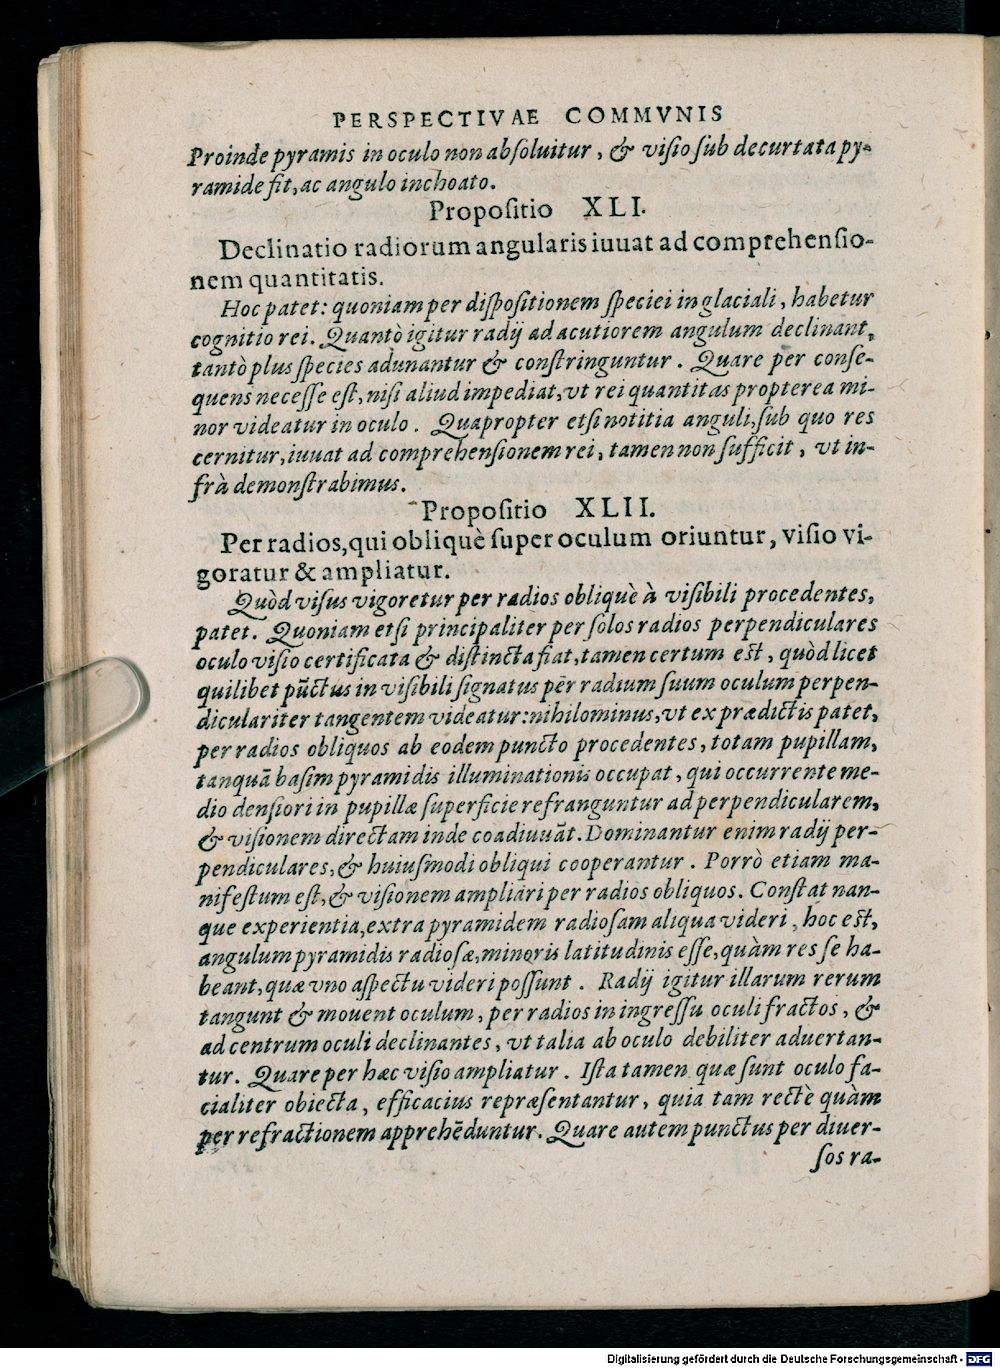 PERSPECTIVAE COMMVNIS
Proinde pyramis in oculo non absoluitur, & visio sub decurtata py-
ramide fit, ac angulo inchoato.
Propositio XLI.
Declinatio radiorum angularis iuuat ad comprehensio-
nem quantitatis.
Hoc patet: quoniam per dispositionem speciei in glaciali, habetur
cognitio rei. Quantò igitur radij ad acutiorem angulum declinant,
tantò plus species adunantur & constringuntur. Quare per conse-
quens necesse est, nisi aliud impediat, vt rei quantitas propterea mi-
nor videatur in oculo. Quapropter etsi notitia anguli, sub quo res
cernitur, iuuat ad comprehensionem rei, tamen non sufficit, vt in-
frà demonstrabimus.
Propositio XLII.
Per radios, qui obliquè super oculum oriuntur, visio vi-
goratur & ampliatur.
Quòd visus vigoretur per radios obliquè à visibili procedentes,
patet. Quoniam etsi principaliter per solos radios perpendiculares
oculo visio certificata & distincta fiat, tamen certum est, quòd licet
quilibet pūctus in visibili signatus per radium suum oculum perpen-
diculariter tangentem videatur: nihilominus, vt ex prædictis patet,
per radios obliquos ab eodem puncto procedentes, totam pupillam,
tanquā basim pyramidis illuminationis occupat, qui occurrente me-
dio densiori in pupillæ superficie refranguntur ad perpendicularem,
& visionem directam inde coadiuuāt. Dominantur enim radij per-
pendiculares, & huiusmodi obliqui cooperantur. Porrò etiam ma-
nifestum est, & visionem ampliari per radios obliquos. Constat nan-
que experientia, extra pyramidem radiosam aliqua videri, hoc est,
angulum pyramidis radiosæ, minoris latitudinis esse, quàm res se ha-
beant, quæ vno aspectu videri possunt. Radij igitur illarum rerum
tangunt & mouent oculum, per radios in ingressu oculi fractos, &
ad centrum oculi declinantes, vt talia ab oculo debiliter aduertan-
tur. Quare per hæc visio ampliatur. Ista tamen quæ sunt oculo fa-
cialiter obiecta, efficacius repræsentantur, quia tam rectè quàm
per refractionem apprehēduntur. Quare autem punctus per diuer-
sos ra-
Digitalisierung gefördert durch die Deutsche Forschungsgemeinschaft - DFG